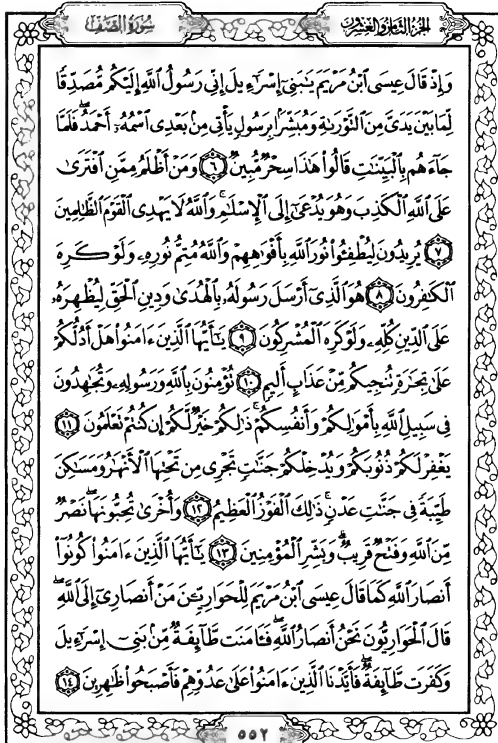 الجزء الثامن والعشرون
سورة الصف
وَإِذْ قَالَ عِيسَى ٱبْنُ مَرْيَمَ يَٰبَنِىٓ إِسْرَٰٓءِيلَ إِنِّى رَسُولُ ٱللَّهِ إِلَيْكُم مُّصَدِّقًا
لِّمَا بَيْنَ يَدَىَّ مِنَ ٱلتَّوْرَىٰةِ وَمُبَشِّرًۢا بِرَسُولٍ يَأْتِى مِنۢ بَعْدِى ٱسْمُهُۥٓ أَحْمَدُ ۖ فَلَمَّا
جَآءَهُم بِٱلْبَيِّنَٰتِ قَالُوا۟ هَٰذَا سِحْرٌ مُّبِينٌ ٦ وَمَنْ أَظْلَمُ مِمَّنِ ٱفْتَرَىٰ
عَلَى ٱللَّهِ ٱلْكَذِبَ وَهُوَ يُدْعَىٰٓ إِلَى ٱلْإِسْلَٰمِ ۚ وَٱللَّهُ لَا يَهْدِى ٱلْقَوْمَ ٱلظَّٰلِمِينَ
٧ يُرِيدُونَ لِيُطْفِـُٔوا۟ نُورَ ٱللَّهِ بِأَفْوَٰهِهِمْ وَٱللَّهُ مُتِمُّ نُورِهِۦ وَلَوْ كَرِهَ
ٱلْكَٰفِرُونَ ٨ هُوَ ٱلَّذِىٓ أَرْسَلَ رَسُولَهُۥ بِٱلْهُدَىٰ وَدِينِ ٱلْحَقِّ لِيُظْهِرَهُۥ
عَلَى ٱلدِّينِ كُلِّهِۦ وَلَوْ كَرِهَ ٱلْمُشْرِكُونَ ٩ يَٰٓأَيُّهَا ٱلَّذِينَ ءَامَنُوا۟ هَلْ أَدُلُّكُمْ
عَلَىٰ تِجَٰرَةٍ تُنجِيكُم مِّنْ عَذَابٍ أَلِيمٍ ١٠ تُؤْمِنُونَ بِٱللَّهِ وَرَسُولِهِۦ وَتُجَٰهِدُونَ
فِى سَبِيلِ ٱللَّهِ بِأَمْوَٰلِكُمْ وَأَنفُسِكُمْ ۚ ذَٰلِكُمْ خَيْرٌ لَّكُمْ إِن كُنتُمْ تَعْلَمُونَ ١١
يَغْفِرْ لَكُمْ ذُنُوبَكُمْ وَيُدْخِلْكُمْ جَنَّٰتٍ تَجْرِى مِن تَحْتِهَا ٱلْأَنْهَٰرُ وَمَسَٰكِنَ
طَيِّبَةً فِى جَنَّٰتِ عَدْنٍ ۚ ذَٰلِكَ ٱلْفَوْزُ ٱلْعَظِيمُ ١٢ وَأُخْرَىٰ تُحِبُّونَهَا ۖ نَصْرٌ
مِّنَ ٱللَّهِ وَفَتْحٌ قَرِيبٌ ۗ وَبَشِّرِ ٱلْمُؤْمِنِينَ ١٣ يَٰٓأَيُّهَا ٱلَّذِينَ ءَامَنُوا۟ كُونُوٓا۟
أَنصَارَ ٱللَّهِ كَمَا قَالَ عِيسَى ٱبْنُ مَرْيَمَ لِلْحَوَارِيِّۦنَ مَنْ أَنصَارِىٓ إِلَى ٱللَّهِ ۖ
قَالَ ٱلْحَوَارِيُّونَ نَحْنُ أَنصَارُ ٱللَّهِ ۖ فَـَٔامَنَت طَّآئِفَةٌ مِّنۢ بَنِىٓ إِسْرَٰٓءِيلَ
وَكَفَرَت طَّآئِفَةٌ ۖ فَأَيَّدْنَا ٱلَّذِينَ ءَامَنُوا۟ عَلَىٰ عَدُوِّهِمْ فَأَصْبَحُوا۟ ظَٰهِرِينَ ١٤
٥٥٢